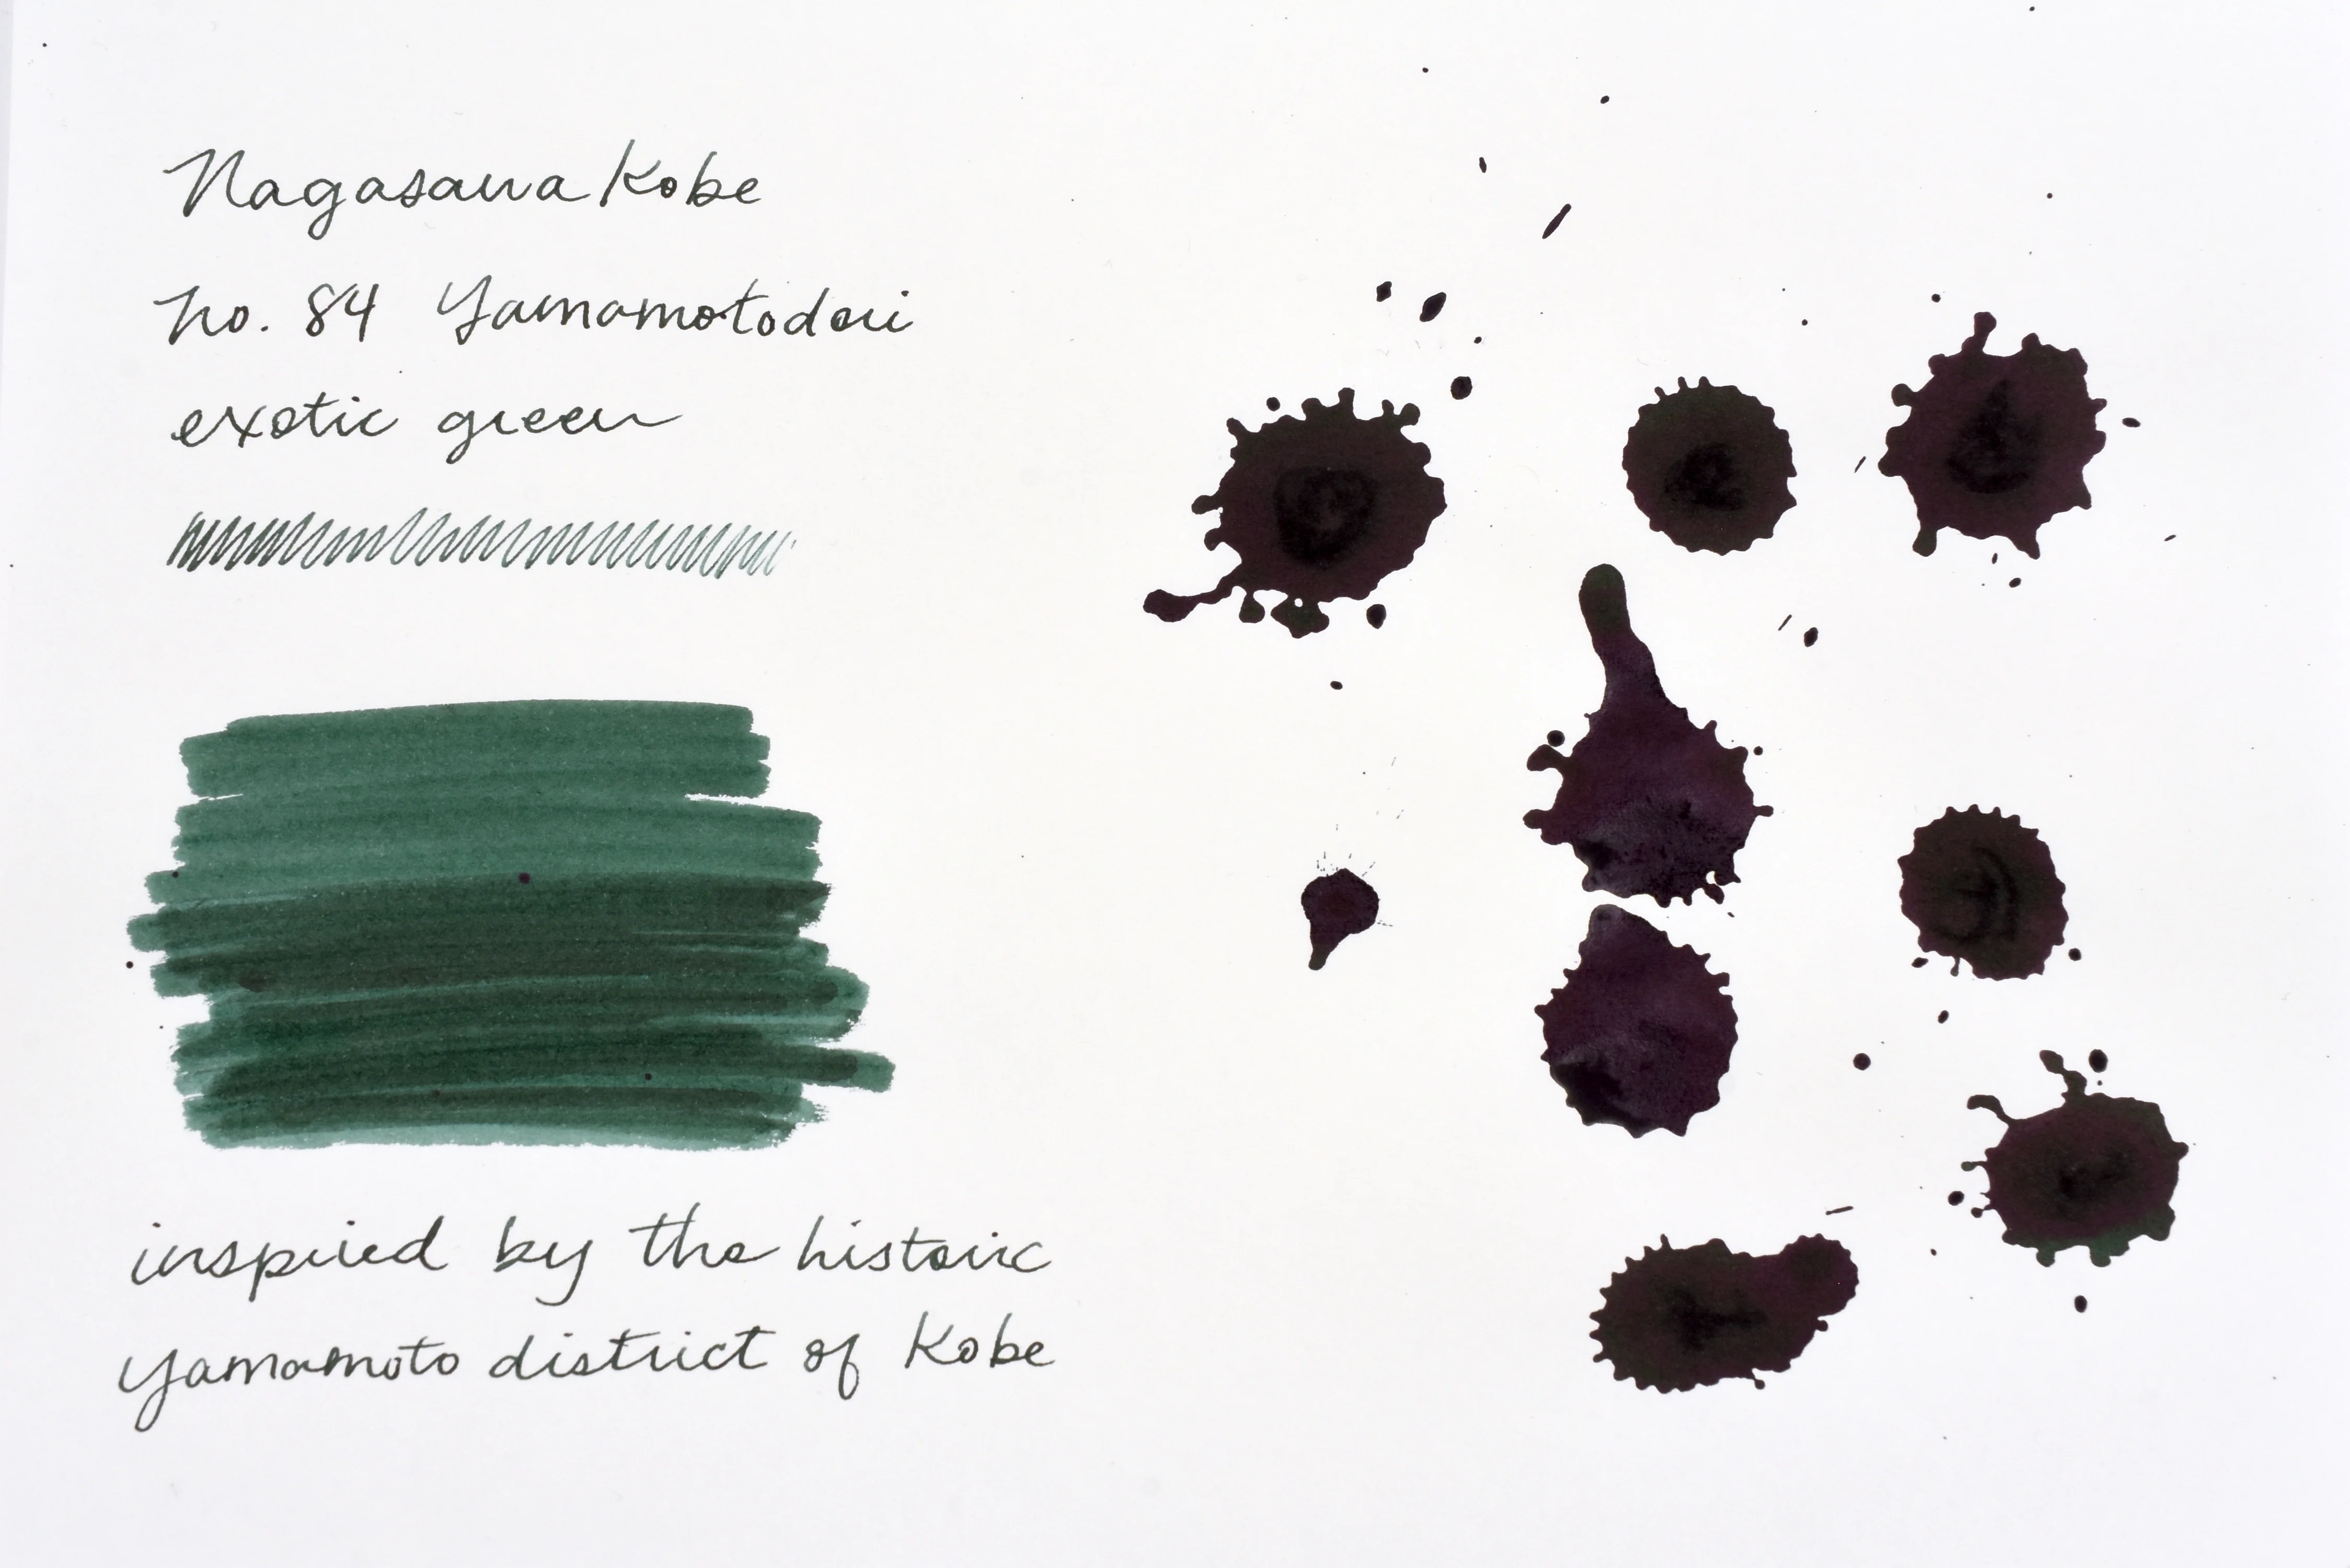 Nagasawa Kobe
no. 84 Yamamotodori
exotic green
inspired by the historic
Yamamoto district of Kobe